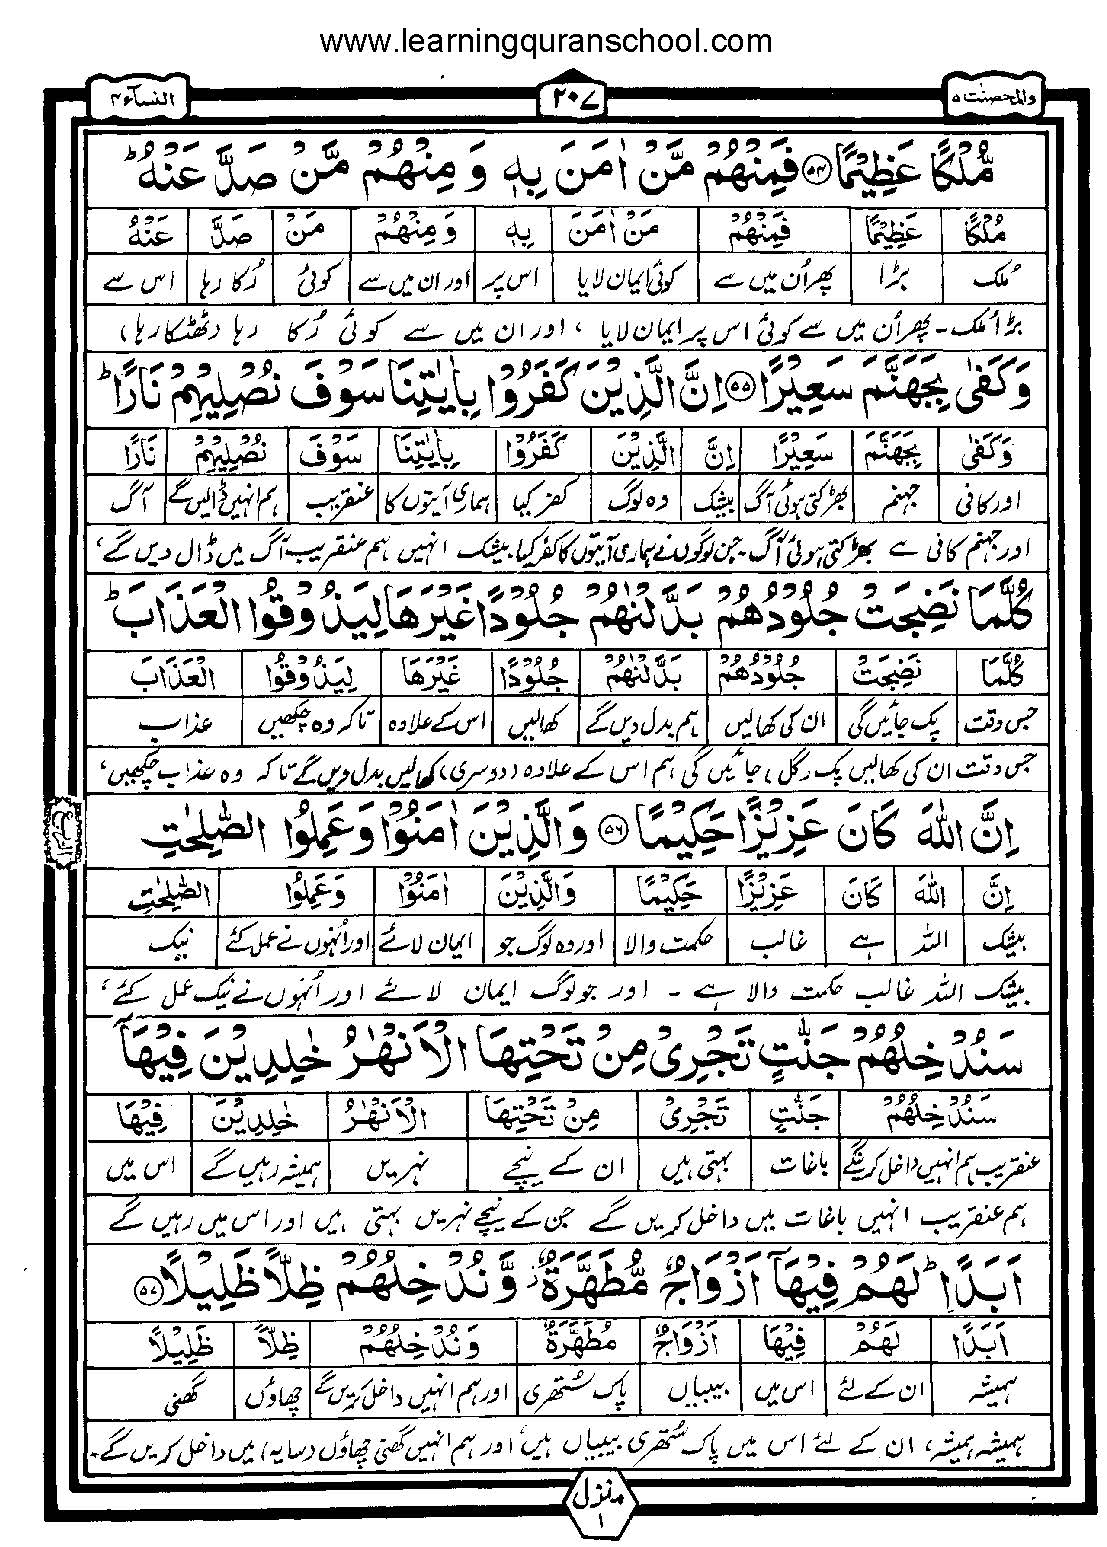 www.learningquranschool.com
النساء ۴
۲۰۷
والمحصنت ۵
مُّلْكًا عَظِیْمًا ۵۴ فَمِنْهُمْ مَّنْ اٰمَنَ بِهٖ وَ مِنْهُمْ مَّنْ صَدَّ عَنْهُ ؕ
مُلْكًا عَظِیْمًا فَمِنْهُمْ مَنْ اٰمَنَ بِهٖ وَ مِنْهُمْ مَنْ صَدَّ عَنْهُ
مُلک بڑا پھر اُن میں سے کوئی ایمان لایا اس پر اور ان میں سے کوئی رُکا رہا اس سے
بڑا مُلک ۔ پھر اُن میں سے کوئی اس پر ایمان لایا ، اور ان میں سے کوئی رُکا رہا (ٹھٹکا رہا)
وَ كَفٰى بِجَهَنَّمَ سَعِیْرًا ۵۵ اِنَّ الَّذِیْنَ كَفَرُوْا بِاٰیٰتِنَا سَوْفَ نُصْلِیْهِمْ نَارًا ؕ
وَ كَفٰى بِجَهَنَّمَ سَعِیْرًا اِنَّ الَّذِیْنَ كَفَرُوْا بِاٰیٰتِنَا سَوْفَ نُصْلِیْهِمْ نَارًا
اور کافی جہنم بھڑکتی ہوئی آگ بیشک وہ لوگ کفر کیا ہماری آیتوں کا عنقریب ہم انہیں ڈالیں گے آگ
اور جہنم کافی ہے بھڑکتی ہوئی آگ جن لوگوں نے ہماری آیتوں کا کفر کیا بیشک انہیں ہم عنقریب آگ میں ڈال دیں گے ،
كُلَّمَا نَضِجَتْ جُلُوْدُهُمْ بَدَّلْنٰهُمْ جُلُوْدًا غَیْرَهَا لِیَذُوْقُوا الْعَذَابَ ؕ
كُلَّمَا نَضِجَتْ جُلُوْدُهُمْ بَدَّلْنٰهُمْ جُلُوْدًا غَیْرَهَا لِیَذُوْقُوا الْعَذَابَ
جس وقت پک جائیں گی ان کی کھالیں ہم بدل دیں گے کھالیں اس کے علاوہ تاکہ وہ چکھیں عذاب
جس وقت ان کی کھالیں پک (گل) جائیں گی ہم اس کے علاوہ (دوسری) کھالیں بدل دیں گے تاکہ وہ عذاب چکھیں ،
الربع
اِنَّ اللّٰهَ كَانَ عَزِیْزًا حَكِیْمًا ۵۶ وَ الَّذِیْنَ اٰمَنُوْا وَ عَمِلُوا الصّٰلِحٰتِ
اِنَّ اللّٰهَ كَانَ عَزِیْزًا حَكِیْمًا وَ الَّذِیْنَ اٰمَنُوْا وَ عَمِلُوا الصّٰلِحٰتِ
بیشک اللہ ہے غالب حکمت والا اور وہ لوگ جو ایمان لائے اور انہوں نے عمل کئے نیک
بیشک اللہ غالب حکمت والا ہے ۔ اور جو لوگ ایمان لائے اور اُنہوں نے نیک عمل کئے ،
سَنُدْخِلُهُمْ جَنّٰتٍ تَجْرِیْ مِنْ تَحْتِهَا الْاَنْهٰرُ خٰلِدِیْنَ فِیْهَاۤ
سَنُدْخِلُهُمْ جَنّٰتٍ تَجْرِیْ مِنْ تَحْتِهَا الْاَنْهٰرُ خٰلِدِیْنَ فِیْهَا
عنقریب ہم انہیں داخل کرینگے باغات بہتی ہیں ان کے نیچے نہریں ہمیشہ رہیں گے اس میں
ہم عنقریب انہیں باغات میں داخل کریں گے جن کے نیچے نہریں بہتی ہیں اور اس میں رہیں گے
اَبَدًا ؕ لَهُمْ فِیْهَاۤ اَزْوَاجٌ مُّطَهَّرَةٌ ؗ وَّ نُدْخِلُهُمْ ظِلًّا ظَلِیْلًا ۵۷
اَبَدًا لَهُمْ فِیْهَا اَزْوَاجٌ مُطَهَّرَةٌ وَ نُدْخِلُهُمْ ظِلًّا ظَلِیْلًا
ہمیشہ ان کے لئے اس میں بیبیاں پاک ستھری اور ہم انہیں داخل کریں گے چھاؤں گھنی
ہمیشہ ہمیشہ ، ان کے لئے اس میں پاک سُتھری بیبیاں ہیں اور ہم انہیں گھنی چھاؤں (سایہ) میں داخل کریں گے ۔
منزل
۱